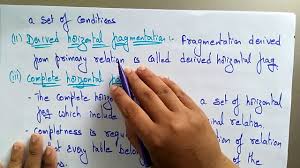 a set of conditions
(ii) Derived horizontal fragmentation :- fragmentation derived
from primary relation is called derived horizontal frag.
(iii) Complete horizontal
- The complete horiz a set of horizontal
frag which include nal relation.
- Completeness is requ of relation
t every table belon